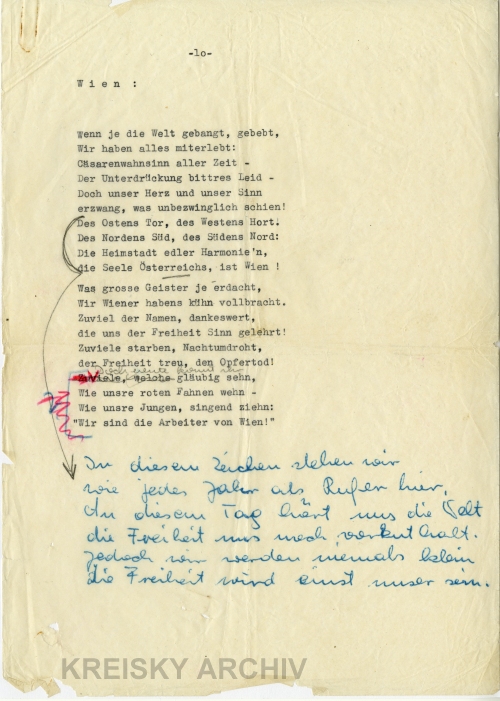 -lo-
W i e n :
Wenn je die Welt gebangt, gebebt,
Wir haben alles miterlebt:
Cäsarenwahnsinn aller Zeit -
Der Unterdrückung bittres Leid -
Doch unser Herz und unser Sinn
erzwang, was unbezwinglich schien!
Des Ostens Tor, des Westens Hort.
Des Nordens Süd, des Südens Nord:
Die Heimstadt edler Harmonie'n,
die Seele Österreichs, ist Wien !
Was grosse Geister je erdacht,
Wir Wiener habens kühn vollbracht.
Zuviel der Namen, dankeswert,
die uns der Freiheit Sinn gelehrt!
Zuviele starben, Nachtumdroht,
der Freiheit treu, den Opfertod!
Doch heute könnt ihr
Zuviele, welche gläubig sehn,
Wie unsre roten Fahnen wehn -
Wie unsre Jungen, singend ziehn:
"Wir sind die Arbeiter von Wien!"
In diesem Zeichen stehen wir
wie jedes Jahr als Rufer hier.
An diesem Tag hört uns die Welt
die Freiheit uns noch vorenthält.
Jedoch wir werden niemals klein
die Freiheit wird einst unser sein.
KREISKY ARCHIV